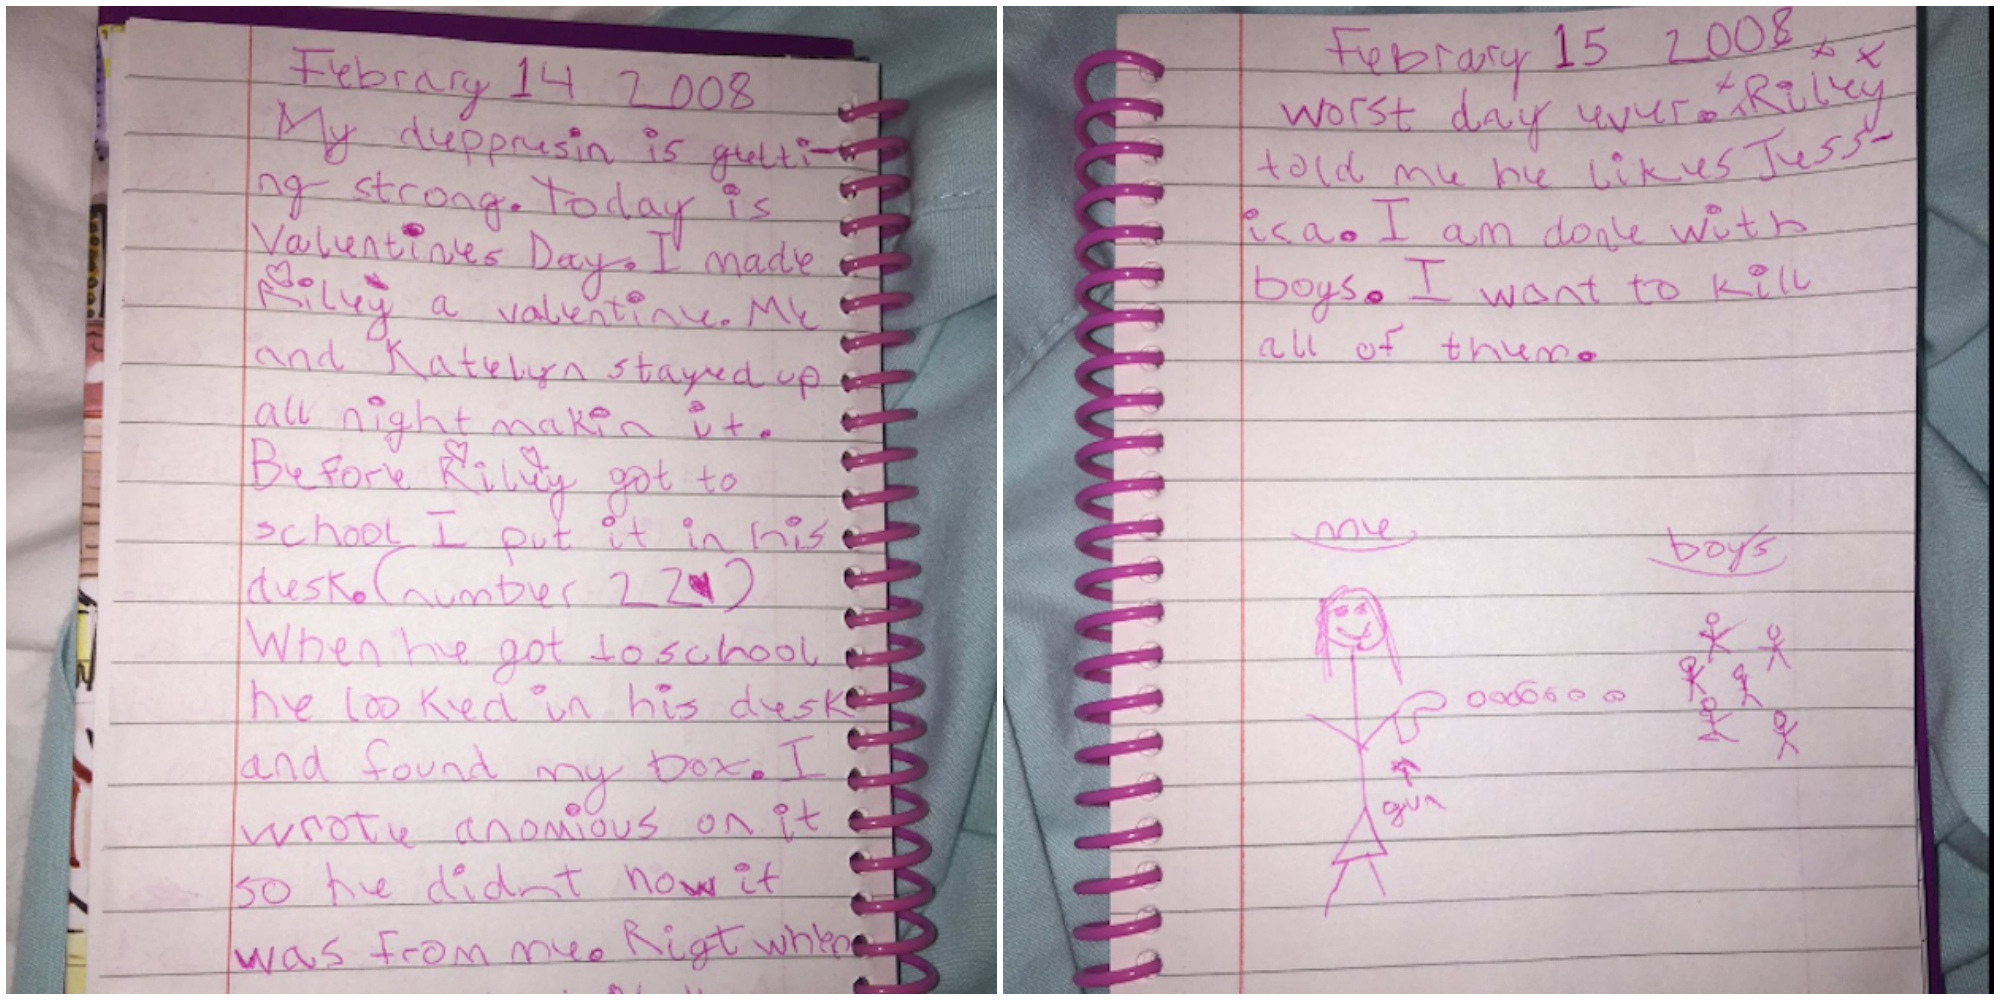 Febrary 14 2008
My deppresin is getti-
ng strong. Today is
Valentines Day. I made
Riley a valentine. Me
and Katelyn stayed up
all night makin it.
Before Riley got to
school I put it in his
desk. (number 22)
When he got to school
he looked in his desk
and found my box. I
wrote anomious on it
so he didnt now it
was from me. Rigt when
Febrary 15 2008
worst day ever. Riley
told me he likes Jess-
ica. I am done with
boys. I want to kill
all of them.
me
boys
gun